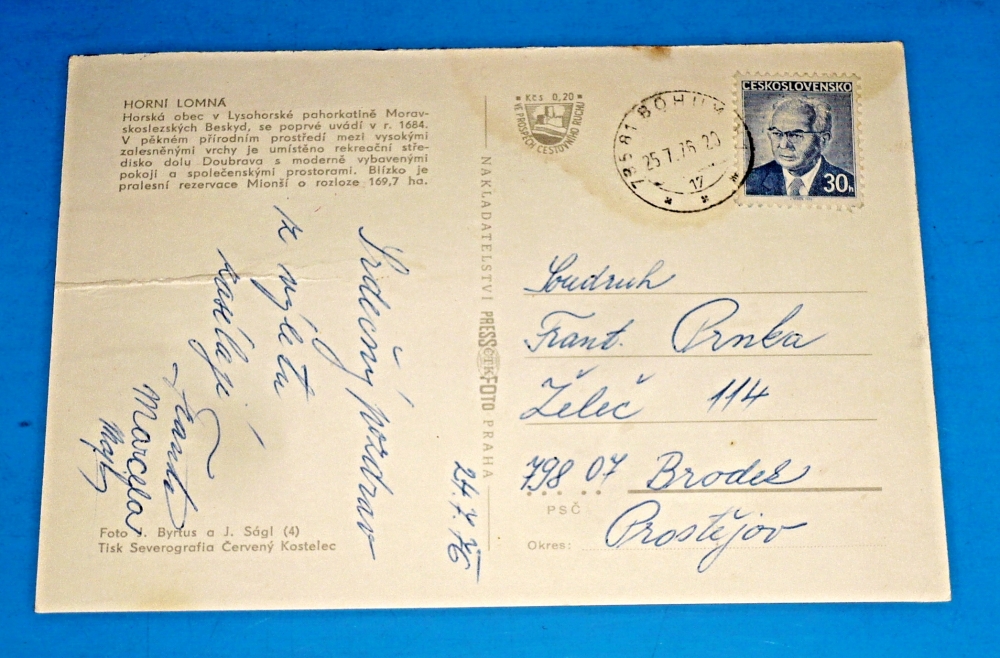 HORNÍ LOMNÁ
Horská obec v Lysohorské pahorkatině Morav-
skoslezských Beskyd, se poprvé uvádí v r. 1684.
V pěkném přírodním prostředí mezi vysokými
zalesněnými vrchy je umístěno rekreační stře-
disko dolu Doubrava s moderně vybavenými
pokoji a společenskými prostorami. Blízko je
pralesní rezervace Mionší o rozloze 169,7 ha.
Srdečný pozdrav
z výletu
zasílají
Franta
Marcela
24.7.76
Foto J. Byrtus a J. Ságl (4)
Tisk Severografia Červený Kostelec
NAKLADATELSTVÍ PRESSFOTO PRAHA
ČTK
Kčs 0,20
VE PROSPĚCH CESTOVNÍHO RUCHU
735 81 BOHUM
25.7.76 20
17
ČESKOSLOVENSKO
30h
Soudruh
Frant. Prnka
Želeč 114
798 07 Brodek
PSČ
Okres: Prostějov